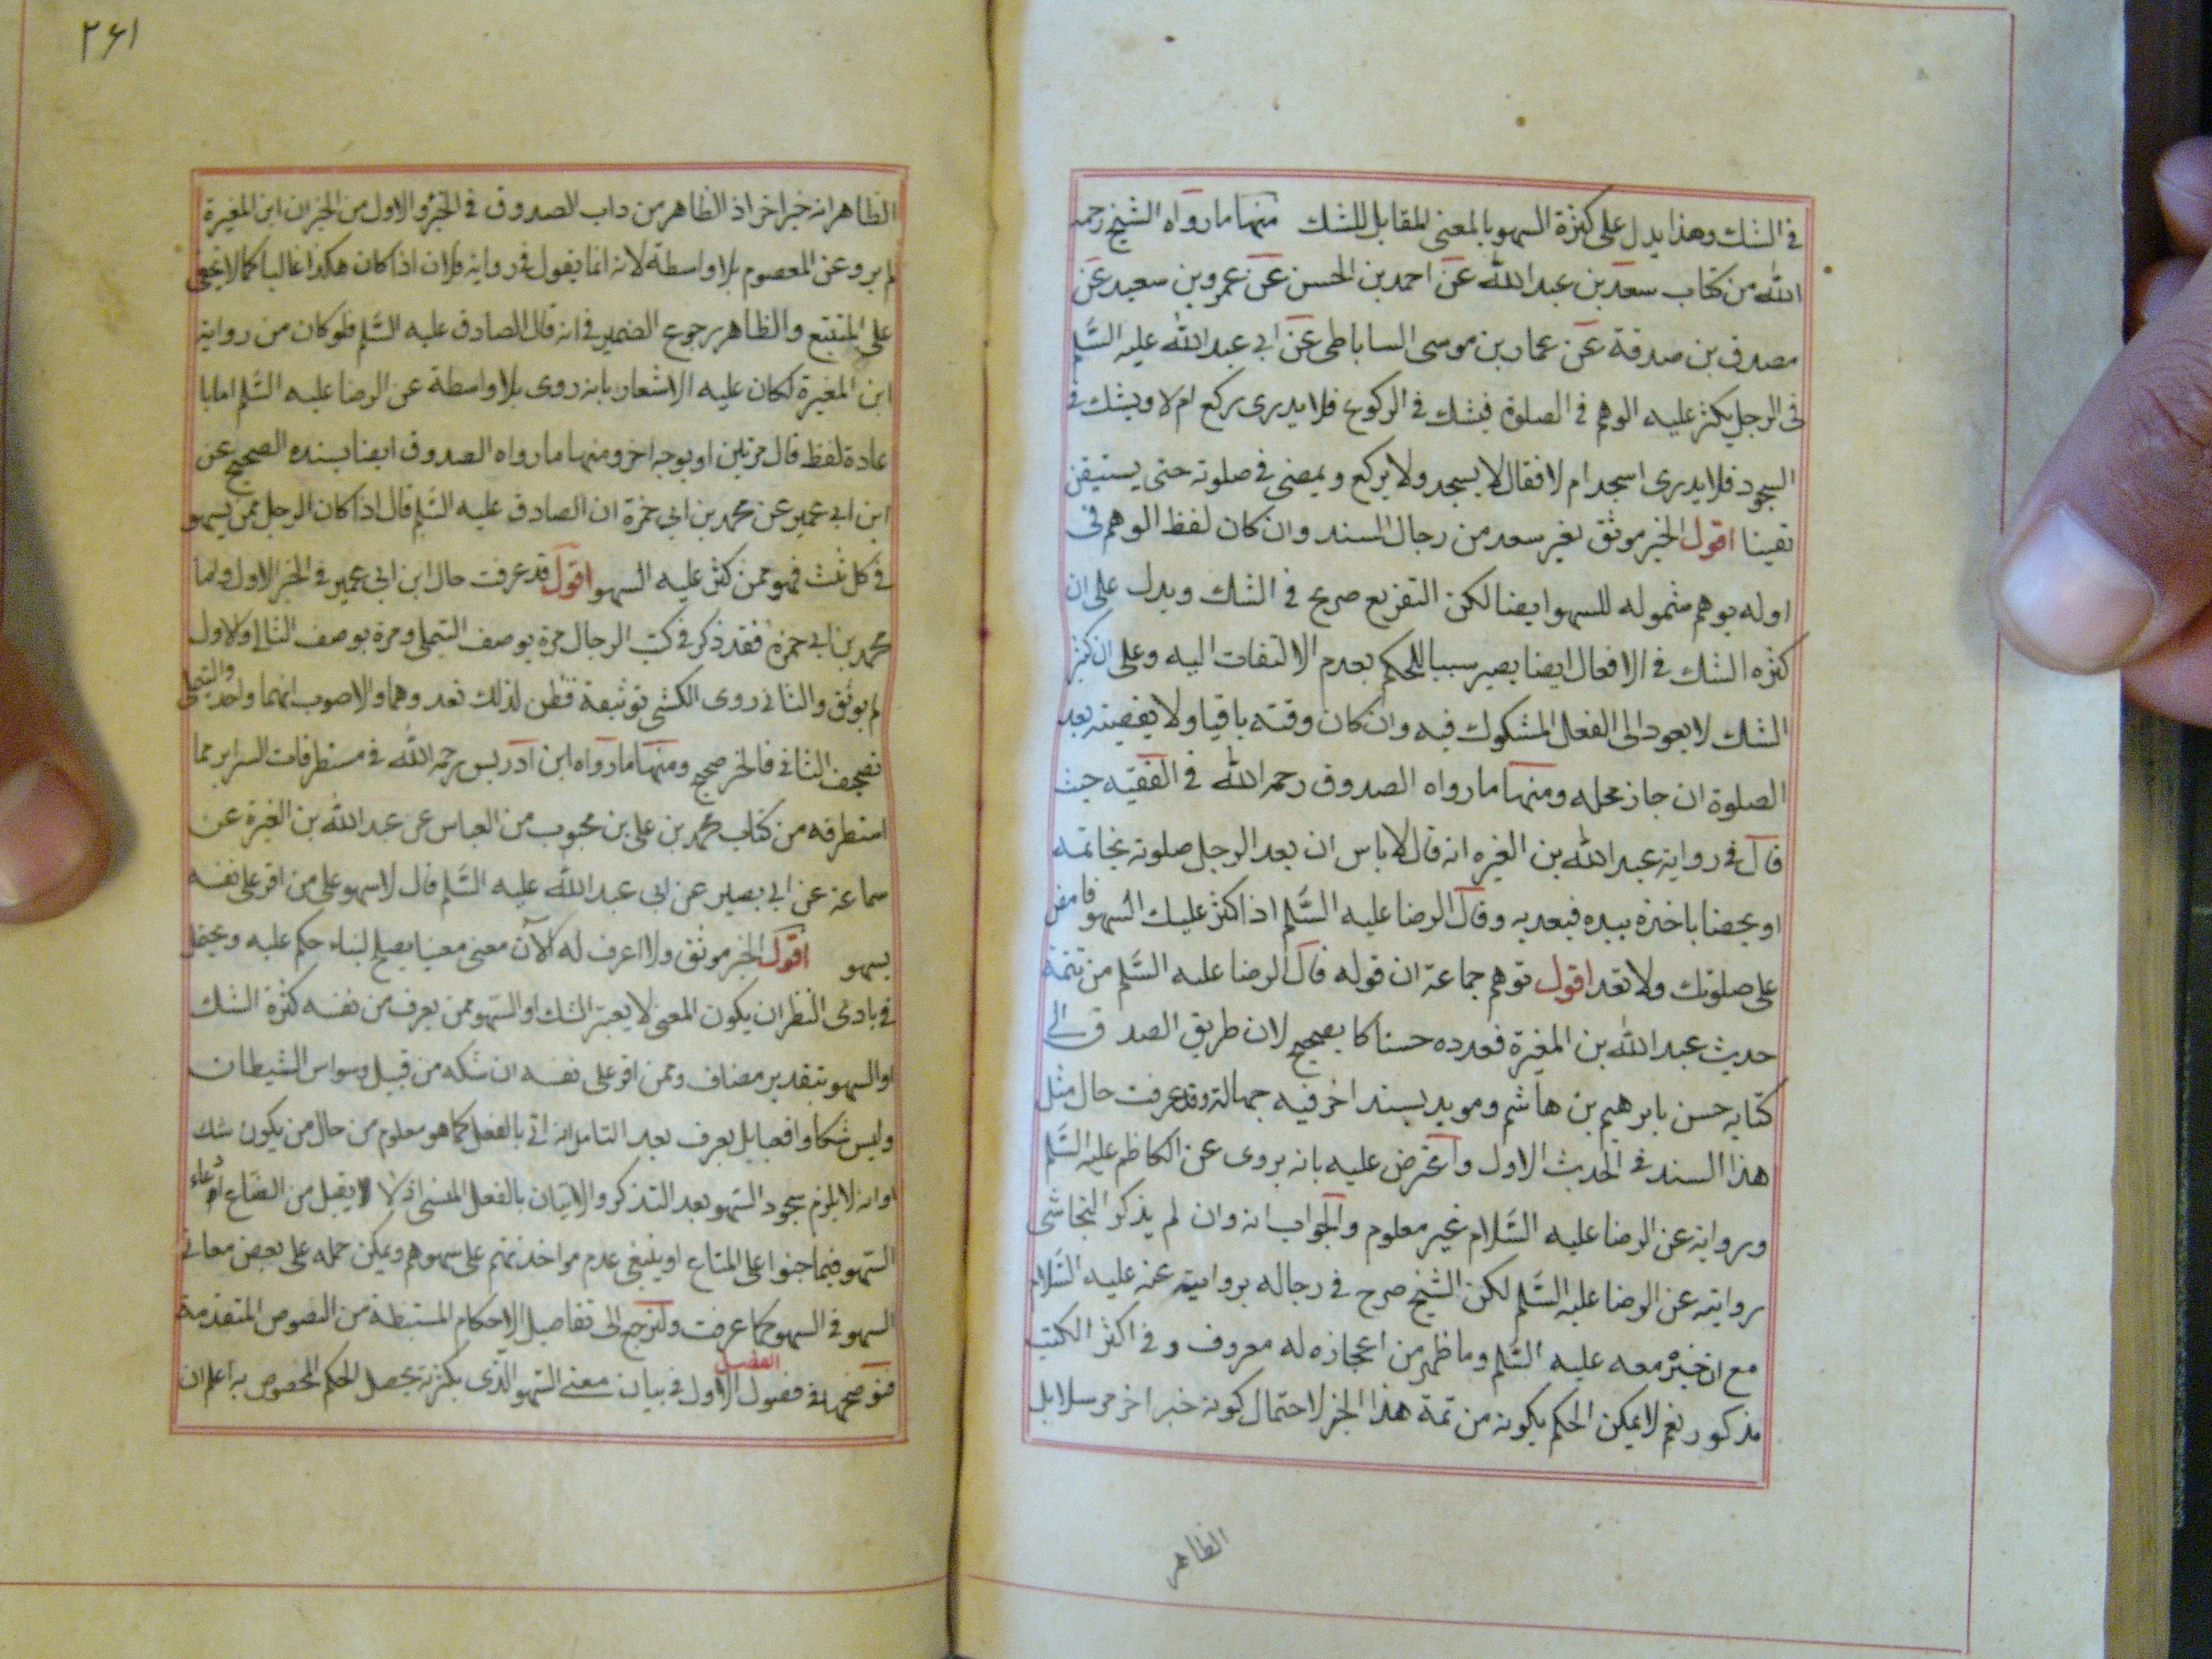 في الشك وهذا يدل على كثرة السهو بالمعنى المقابل للشك منها ما رواه الشيخ رحمه
الله من كتاب سعد بن عبد الله عن احمد بن الحسن عن عمرو بن سعيد عن
مصدق بن صدقة عن عمار بن موسى الساباطى عن ابي عبد الله عليه السلم
في الرجل يكثر عليه الوهم في الصلوة فيشك في الركوع فلا يدرى يركع ام لا ويشك في
السجود فلا يدرى اسجد ام لا فقال لا يسجد ولا يركع ويمضى في صلوته حتى يستيقن
يقينا اقول الخبر موثق بغير سعد من رجال السند وان كان لفظ الوهم في
اوله يوهم شموله للسهو ايضا لكن التفريع صريح في الشك ويدل على ان
كثره الشك في الافعال ايضا يصير سببا للحكم بعدم الالتفات اليه وعلى ان كثير
الشك لا يعود الى الفعل المشكوك فيه وان كان وقته باقيا ولا يقضيه بعد
الصلوة ان جاز محله ومنها ما رواه الصدوق رحمه الله في الفقيه حيث
قال في رواية عبد الله بن المغيره انه قال لا باس ان يعد الرجل صلوته بخاتمه
او بحصا ياخذه بيده فيعد به وقال الرضا عليه السلم اذا كثر عليك السهو فامض
على صلوتك ولا تعد اقول توهم جماعة ان قوله قال الرضا عليه السلم من تتمة
حديث عبد الله بن المغيرة فعدوه حسنا كا بصحيح لان طريق الصدوق الى
كتابه حسن بابرهيم بن هاشم ومويد بسند اخر فيه جهالة وقد عرفت حال مثل
هذا السند في الحديث الاول واعترض عليه بانه يروى عن الكاظم عليه السلم
وروايته عن الرضا عليه السلام غير معلوم والجواب انه وان لم يذكر النجاشى
روايته عن الرضا عليه السلم لكن الشيخ صرح في رجاله بروايته عنه عليه السلام
مع ان خبره معه عليه السلم وما ظهر من اعجازه له معروف وفي اكثر الكتب
مذكور نعم لا يمكن الحكم بكونه من تتمة هذا الخبر لاحتمال كونه خبرا اخر مرسلا بل
الظاهر
٢٤١
الظاهر انه خبر اخر اذ الظاهر من داب الصدوق في الجزء الاول من الخبر ان ابن المغيرة
لم يرو عن المعصوم بلا واسطة لانه انما يقول في رواية فلان اذا كان هكذا غالبا كما لا يخفى
على المتتبع والظاهر رجوع الضمير في انه قال للصادق عليه السلم فلو كان من رواية
ابن المغيرة لكان عليه الاشعار بانه روى بلا واسطة عن الرضا عليه السلم اما با
عادة لفظ قال مرتين او بوجه اخر ومنها ما رواه الصدوق ايضا بسنده الصحيح عن
ابن ابي عمير عن محمد بن ابي حمزة ان الصادق عليه السلم قال اذا كان الرجل ممن يسهو
في كل ثلث فهو ممن كثر عليه السهو اقول قد عرفت حال ابن ابي عمير في الخبر الاول واما
محمد بن ابي حمزة فقد ذكر في كتب الرجال مرة بوصف التيملي ومرة بوصف الثمالي والاول
لم يوثق والثاني روى الكشى توثيقه فظن لذلك تعددهما والاصوب انهما واحد والتيملى
تصحيف الثاني فالخبر صحيح ومنها ما رواه ابن ادريس رحمه الله في مستطرفات السراير مما
استطرفه من كتاب محمد بن على بن محبوب من العباس عن عبد الله بن المغيرة عن
سماعة عن ابي بصير عن ابي عبد الله عليه السلم قال لا سهو على من اقر على نفسه
بسهو اقول الخبر موثق ولا اعرف له الآن معنى معينا يصلح لبناء حكم عليه ويحتمل
في بادى النظر ان يكون المعنى لا يعتبر الشك او السهو ممن يعرف من نفسه كثرة الشك
او السهو بتقدير مضاف وممن اقر على نفسه ان شكه من قبيل وسواس الشيطان
وليس شكا واقعيا بل يعرف بعد التامل انه اتى بالفعل كما هو معلوم من حال من يكون شك
او انه لا يلزم سجود السهو بعد التذكر والاتيان بالفعل المنسى اذ لا يقبل من الصناع ادعاء
السهو فيما جنوا على المتاع او ينبغى عدم مواخذتهم على سهوهم ويمكن حمله على بعض معانى
السهو في السهو كما عرفت ولنرجع الى تفاصيل الاحكام المستنبطة من النصوص المتقدمة
فنوضحها في فصول الفصل الاول في بيان معنى السهو الذى بكثرته يحصل الحكم المخصوص به اعلم ان